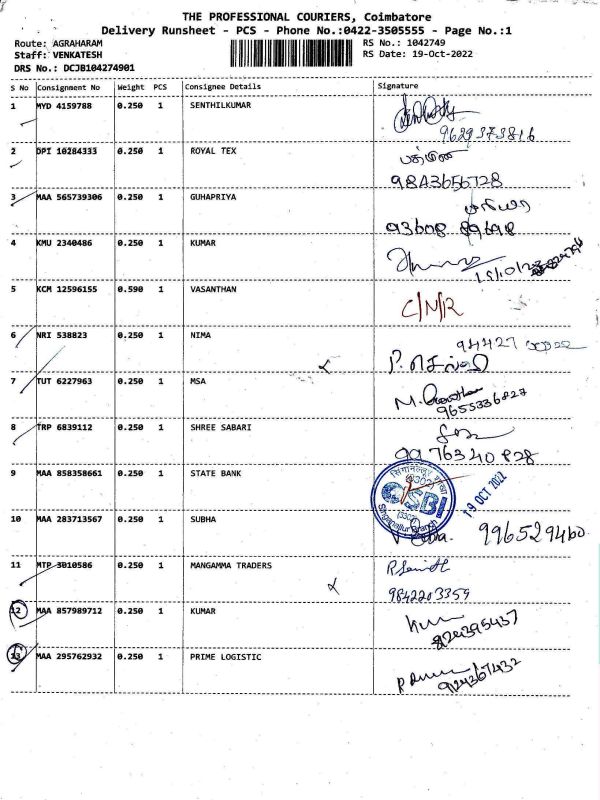 THE PROFESSIONAL COURIERS, Coimbatore
Delivery Runsheet - PCS - Phone No.:0422-3505555 - Page No.:1
Route: AGRAHARAM
Staff: VENKATESH
DRS No.: DCJB104274901
RS No.: 1042749
RS Date: 19-Oct-2022
S No Consignment No Weight PCS Consignee Details Signature
1 MYD 4159788 0.250 1 SENTHILKUMAR
9629373816
2 DPI 10284333 0.250 1 ROYAL TEX
9843656728
3 MAA 565739306 0.250 1 GUHAPRIYA
93608 89698
4 KMU 2340486 0.250 1 KUMAR
5 KCM 12596155 0.590 1 VASANTHAN C/N/R
6 NRI 538823 0.250 1 NIMA
94427
7 TUT 6227963 0.250 1 MSA
9655336827
8 TRP 6839112 0.250 1 SHREE SABARI
9976340828
9 MAA 858358661 0.250 1 STATE BANK
SBI
Singanallur Branch
19 OCT 2022
10 MAA 283713567 0.250 1 SUBHA
996529460
11 MTP 3010586 0.250 1 MANGAMMA TRADERS
9842203359
12 MAA 857989712 0.250 1 KUMAR
13 MAA 295762932 0.250 1 PRIME LOGISTIC